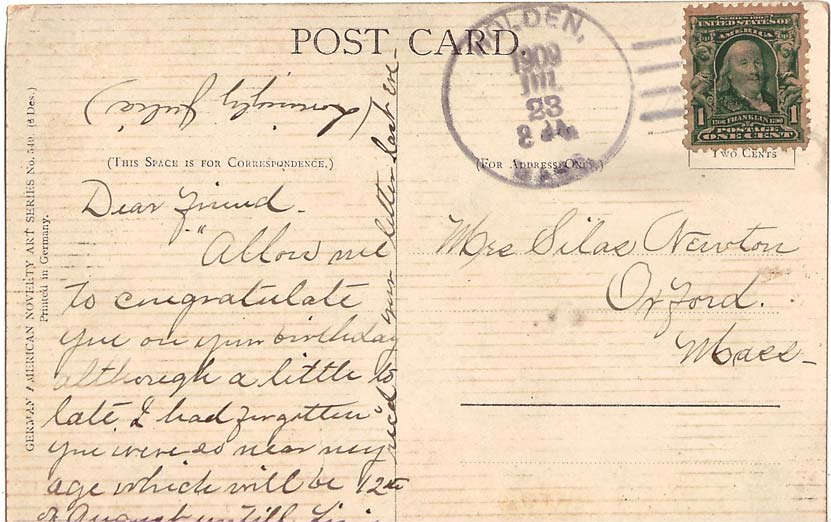 POST CARD.
HOLDEN,
1909
JUL
23
8 AM
MASS
SERIES 1902
UNITED STATES OF
AMERICA
1 FRANKLIN 1
POSTAGE
ONE CENT
TWO CENTS
(THIS SPACE IS FOR CORRESPONDENCE.)
(FOR ADDRESS ONLY.)
GERMAN AMERICAN NOVELTY ART SERIES No. 549. (6 Des.)
Printed in Germany.
Dear friend.
"Allow me
to congratulate
you on your birthday
although a little to
late, I had forgotten
you were so near my
age which will be 12th
of August untill
your letter last eve-
(Lovingly Julia)
Mrs Silas Newton
Oxford.
Mass-